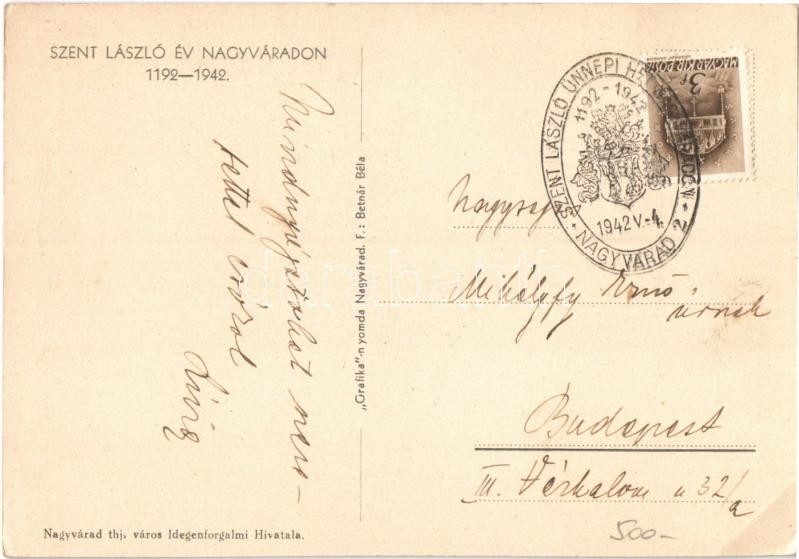 SZENT LÁSZLÓ ÉV NAGYVÁRADON
1192—1942.
Mindnyájatokat
tettel csókol
„Grafika"-nyomda Nagyvárad. F.: Betnár Béla
Nagyvárad thj. város Idegenforgalmi Hivatala.
MAGYAR KIR. POSTA
3f
SZENT LÁSZLÓ ÜNNEPI
1192-1942
1942 V.-4.
NAGYVÁRAD 2
Mihályfy Ernő
úrnak
Budapest
III. Vérhalom u 32/a
500-